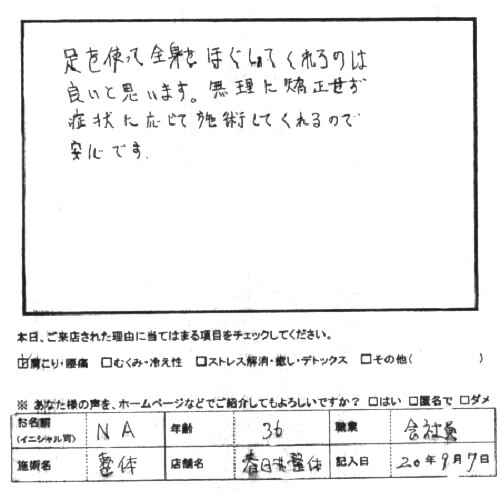 足を使って全身をほぐしてくれるのは
良いと思います。無理に矯正せず
症状に応じて施術してくれるので
安心です.
本日、ご来店された理由に当てはまる項目をチェックしてください。
☑肩こり・腰痛 □むくみ・冷え性 □ストレス解消・癒し・デトックス □その他( )
※ あなた様の声を、ホームページなどでご紹介してもよろしいですか? □はい □匿名で □ダメ
お名前(イニシャル可) NA 年齢 36 職業 会社員
施術名 整体 店舗名 春日井整体 記入日 20年9月7日